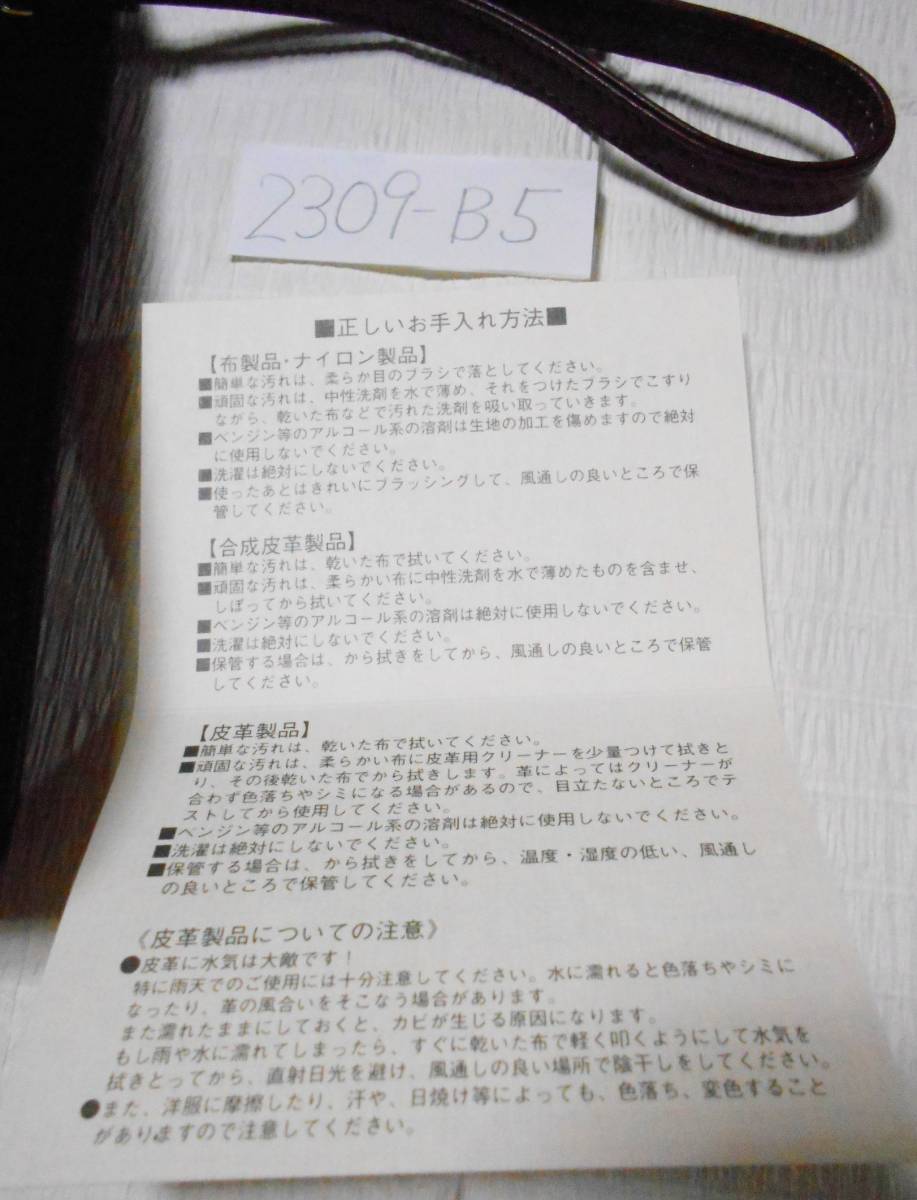 2309-B5
■正しいお手入れ方法■
【布製品・ナイロン製品】
■簡単な汚れは、柔らか目のブラシで落としてください。
■頑固な汚れは、中性洗剤を水で薄め、それをつけたブラシでこすり
ながら、乾いた布などで汚れた洗剤を吸い取っていきます。
■ベンジン等のアルコール系の溶剤は生地の加工を傷めますので絶対
に使用しないでください。
■洗濯は絶対にしないでください。
■使ったあとはきれいにブラッシングして、風通しの良いところで保
管してください。
【合成皮革製品】
■簡単な汚れは、乾いた布で拭いてください。
■頑固な汚れは、柔らかい布に中性洗剤を水で薄めたものを含ませ、
しぼってから拭いてください。
■ベンジン等のアルコール系の溶剤は絶対に使用しないでください。
■洗濯は絶対にしないでください。
■保管する場合は、から拭きをしてから、風通しの良いところで保管
してください。
【皮革製品】
■簡単な汚れは、乾いた布で拭いてください。
■頑固な汚れは、柔らかい布に皮革用クリーナーを少量つけて拭きと
り、その後乾いた布でから拭きします。革によってはクリーナーが
合わず色落ちやシミになる場合があるので、目立たないところでテ
ストしてから使用してください。
■ベンジン等のアルコール系の溶剤は絶対に使用しないでください。
■洗濯は絶対にしないでください。
■保管する場合は、から拭きをしてから、温度・湿度の低い、風通し
の良いところで保管してください。
《皮革製品についての注意》
●皮革に水気は大敵です！
特に雨天でのご使用には十分注意してください。水に濡れると色落ちやシミに
なったり、革の風合いをそこなう場合があります。
また濡れたままにしておくと、カビが生じる原因になります。
もし雨や水に濡れてしまったら、すぐに乾いた布で軽く叩くようにして水気を
拭きとってから、直射日光を避け、風通しの良い場所で陰干しをしてください。
●また、洋服に摩擦したり、汗や、日焼け等によっても、色落ち、変色すること
がありますので注意してください。